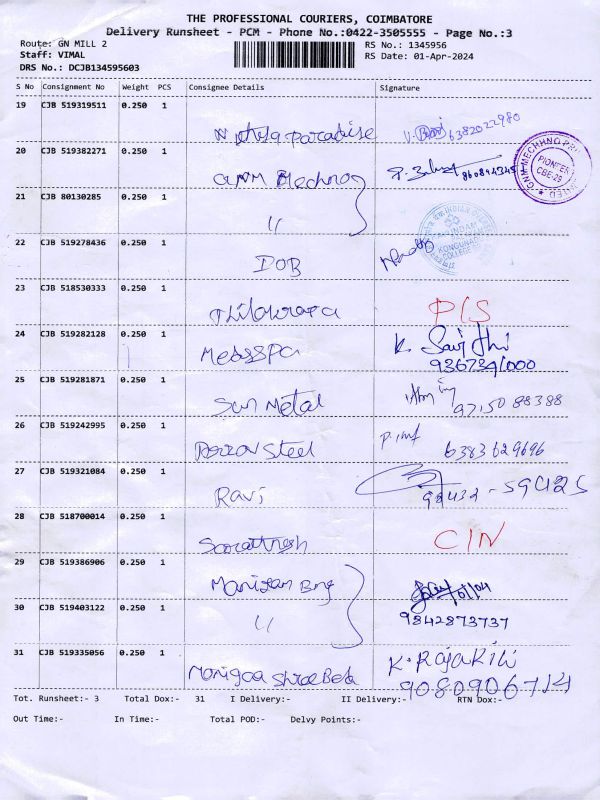 THE PROFESSIONAL COURIERS, COIMBATORE
Delivery Runsheet - PCM - Phone No.:0422-3505555 - Page No.:3
Route: GN MILL 2 RS No.: 1345956
Staff: VIMAL RS Date: 01-Apr-2024
DRS No.: DCJB134595603
S No Consignment No Weight PCS Consignee Details Signature
19 CJB 519319511 0.250 1 Paradise 6382022980
20 CJB 519382271 0.250 1 GNM Mechno
21 CJB 80130285 0.250 1 〃
22 CJB 519278436 0.250 1 IOB
23 CJB 518530333 0.250 1
24 CJB 519282128 0.250 1 MedsSPa K.
9367391000
25 CJB 519281871 0.250 1 Sun Metal 97150 88388
26 CJB 519242995 0.250 1 Steel 6383629696
27 CJB 519321084 0.250 1 Ravi 98432-59425
28 CJB 518700014 0.250 1 CIN
29 CJB 519386906 0.250 1
30 CJB 519403122 0.250 1 〃 9842873737
31 CJB 519335056 0.250 1 K. RajaKili
9080906714
Tot. Runsheet:- 3 Total Dox:- 31 I Delivery:- II Delivery:- RTN Dox:-
Out Time:- In Time:- Total POD:- Delvy Points:-